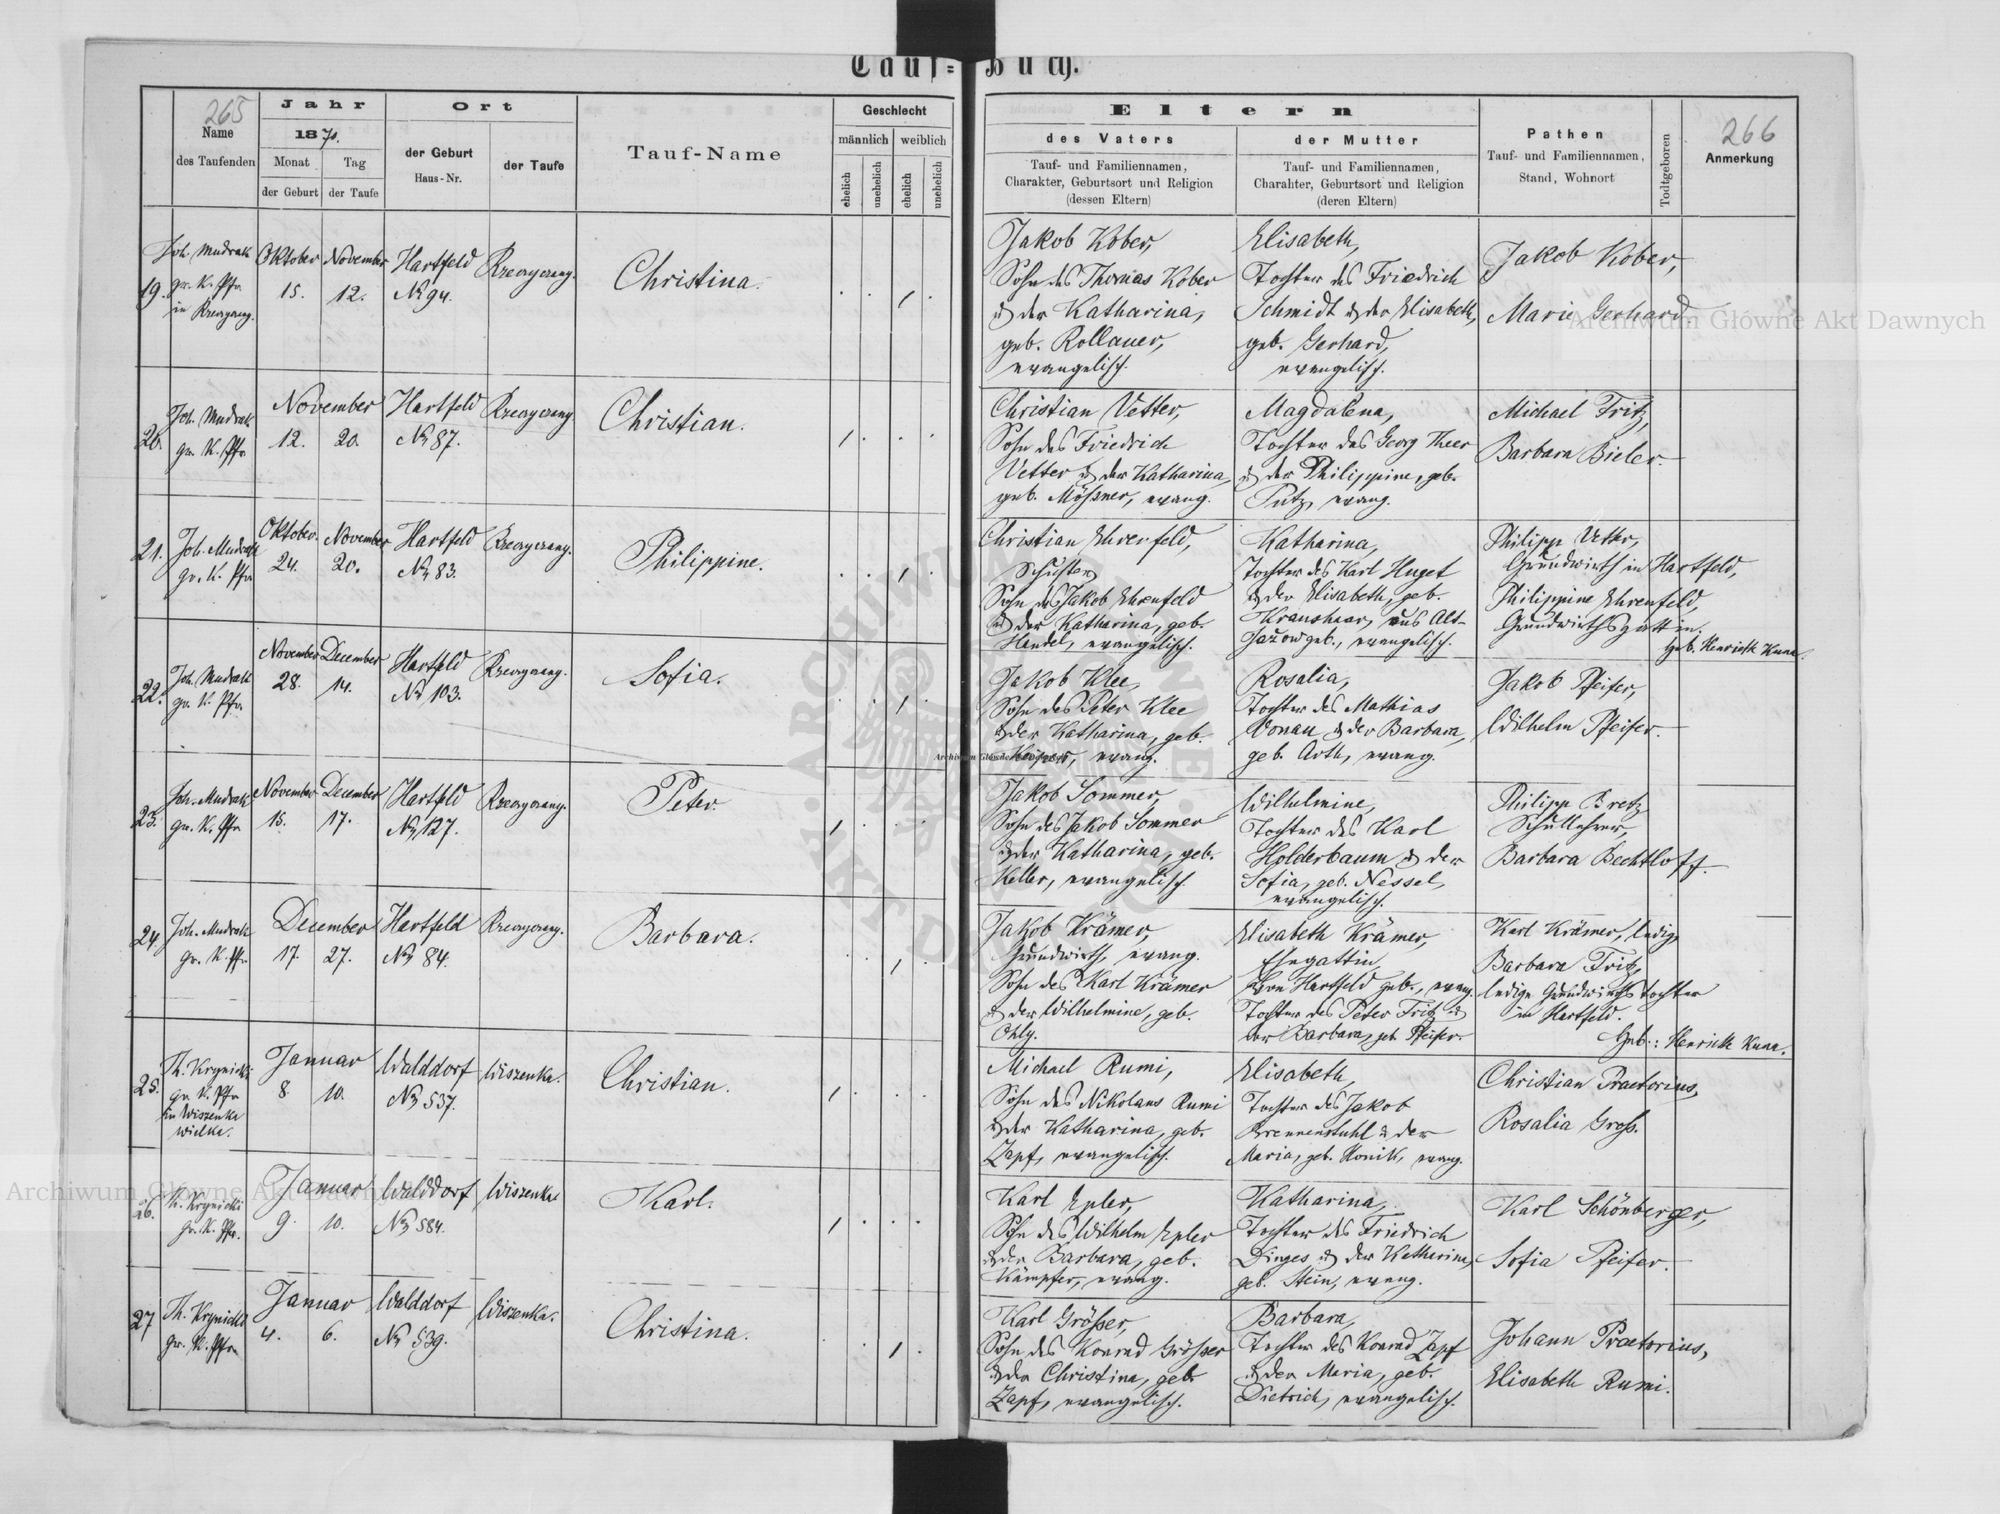 Tauf-Buch.
265
Name
des Taufenden
Jahr
1871.
Monat
Tag
der Geburt
der Taufe
Ort
der Geburt
Haus-Nr.
der Taufe
Tauf-Name
Geschlecht
männlich
weiblich
ehelich
unehelich
ehelich
unehelich
Eltern
des Vaters
Tauf- und Familiennamen,
Charakter, Geburtsort und Religion
(dessen Eltern)
der Mutter
Tauf- und Familiennamen,
Charahter, Geburtsort und Religion
(deren Eltern)
Pathen
Tauf- und Familiennamen,
Stand, Wohnort
Todtgeboren
266
Anmerkung
19.
Joh. Mudrak
gr. K. Pfr.
in
Oktober
15.
November
12.
Hartfeld
No 94.
Christina.
Jakob Kober,
Sohn des Thomas Kober
u. der Katharina,
geb. Rollauer,
evangelisch.
Elisabeth,
Tochter des Friedrich
Schmidt u. der Elisabeth,
geb. Gerhard,
evangelisch.
Jakob Kober,
Marie Gerhard
20.
Joh. Mudrak
gr. K. Pfr.
November
12. 20.
Hartfeld
No 87.
Christian.
Christian Vetter,
Sohn des Friedrich
Vetter u. der Katharina,
geb. Mößner, evang.
Magdalena,
Tochter des Georg Theer
u. der Philippine, geb.
Putz, evang.
Michael Fritz,
Barbara Bieler.
21.
Joh. Mudrak
gr. K. Pfr.
Oktober.
24.
November
20.
Hartfeld
No 83.
Philippine.
Christian Ehrenfeld,
Schuster,
Sohn des Jakob Ehrenfeld
u. der Katharina, geb.
Handel, evangelisch.
Katharina,
Tochter des Karl Huget
u. der Elisabeth, geb.
Kranshaar, aus Alt-
Jazow geb., evangelisch.
Philipp Vetter,
Grundwirth in Hartfeld,
Philippine Ehrenfeld,
Grundwirthsgattin.
Geb. Henriette Kuna.
22.
Joh. Mudrak
gr. K. Pfr.
November
28.
December
14.
Hartfeld
No 103.
Sofia.
Jakob Klee,
Sohn des Peter Klee
u. der Katharina, geb.
evang.
Rosalia,
Tochter des Mathias
Donau u. der Barbara,
geb. Arth, evang.
Jakob Pfeifer,
Wilhelm Pfeifer.
23.
Joh. Mudrak
gr. K. Pfr.
November
15.
December
17.
Hartfeld
No 127.
Peter.
Jakob Sommer,
Sohn des Jakob Sommer
u. der Katharina, geb.
Keller, evangelisch.
Wilhelmine,
Tochter des Karl
Holderbaum u. der
Sofia, geb. Nessel,
evangelisch.
Philipp Bretz
Schullehrer,
Barbara Bechtloff.
24.
Joh. Mudrak
gr. K. Pfr.
December
17. 27.
Hartfeld
No 84.
Barbara.
Jakob Krämer,
Grundwirth, evang.
Sohn des Karl Krämer
u. der Wilhelmine, geb.
Ohly.
Elisabeth Krämer,
Ehegattin,
von Hartfeld geb., evang.
Tochter des Peter Fritz u.
der Barbara, geb. Pfeifer.
Karl Krämer, ledig,
Barbara Fritz,
ledige Grundwirthstochter
in Hartfeld.
Geb.: Henriette Kuna.
25.
Th. Krynicki
gr. K. Pfr.
in Wiszenka
wielka.
Januar
8. 10.
Walddorf
No 537.
Wiszenka.
Christian.
Michael Rumi,
Sohn des Nikolaus Rumi
u. der Katharina, geb.
Zapf, evangelisch.
Elisabeth,
Tochter des Jakob
Brennenstuhl u. der
Maria, geb. Konik, evang.
Christian Praetorius,
Rosalia Groß.
26.
Th. Krynicki
gr. K. Pfr.
Januar
9. 10.
Walddorf
No 584.
Wiszenka
Karl.
Karl Epler,
Sohn des Wilhelm Epler
u. der Barbara, geb.
Kämpfer, evang.
Katharina,
Tochter des Friedrich
Dinges u. der Katharina,
geb. Stein, evang.
Karl Schönberger,
Sofia Pfeifer.
27
Th. Krynicki
gr. K. Pfr.
Januar
4. 6.
Walddorf
No 539.
Wiszenka.
Christina.
Karl Größer,
Sohn des Konrad Größer
u. der Christina, geb.
Zapf, evangelisch.
Barbara,
Tochter des Konrad Zapf
u. der Maria, geb.
Dietrich, evangelisch.
Johann Praetorius,
Elisabeth Rumi.
Archiwum Główne Akt Dawnych
Archiwum Główne Akt Dawnych